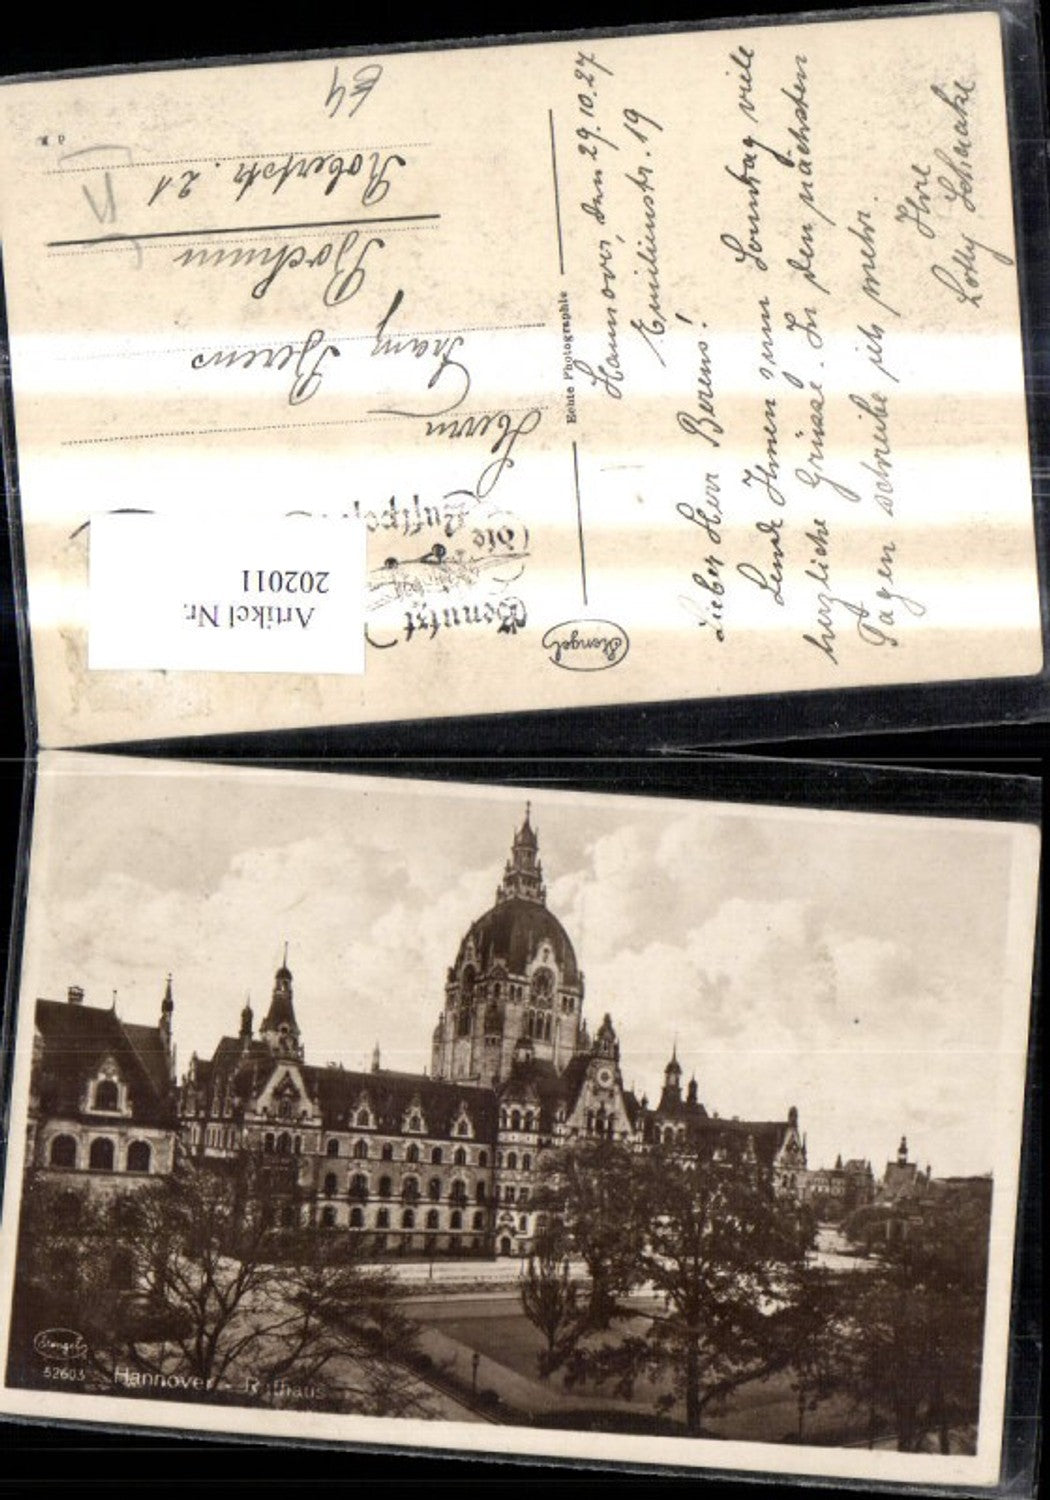 Hannover, den 29.10.27
Emilienstr. 19
Lieber Herr Berens!
Sende Ihnen zum Sonntag viele
herzliche Grüsse. In den nächsten
Tagen schreibe ich mehr.
Ihre
Lotty
Echte Photographie
Stengel
Benutzt
die
Luftpo
Artikel Nr.
202011
Herrn
Franz Berens
Bochum
Robertstr. 21
64
Stengel
52603 Hannover - Rathaus